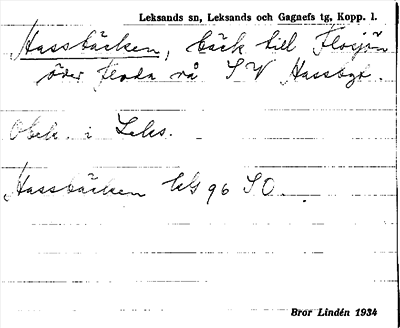 Leksands sn, Leksands och Gagnefs tg, Kopp. l.
Hassbäcken, bäck till Flosjön
över Floda rå SV Hassbgt.
Obek. i Leks.
Hassbäcken kG 96 SO.
Bror Lindén 1934